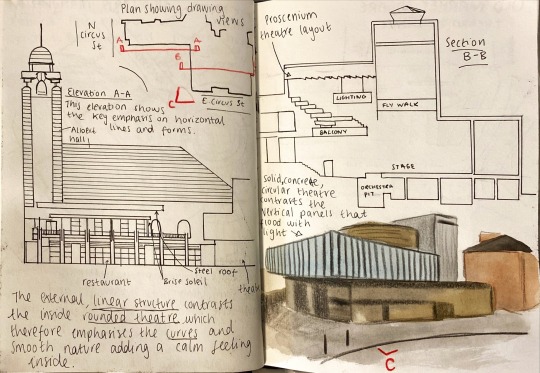 Plan showing drawing
views
N
circus
St
A
A
B
C
E. Circus St
Elevation A-A
This elevation shows
the key emphasis on horizontal
lines and forms.
Albert
hall
steel roof
restaurant
Brise soleil
theatre
The external, linear structure contrasts
the inside rounded theatre which
therefore emphasises the curves and
smooth nature adding a calm feeling
inside.
Proscenium
theatre layout
Section
B-B
LIGHTING
FLY WALK
BALCONY
STAGE
ORCHESTRA
PIT
solid, concrete,
circular theatre
contrasts the
vertical panels that
flood with
light
C